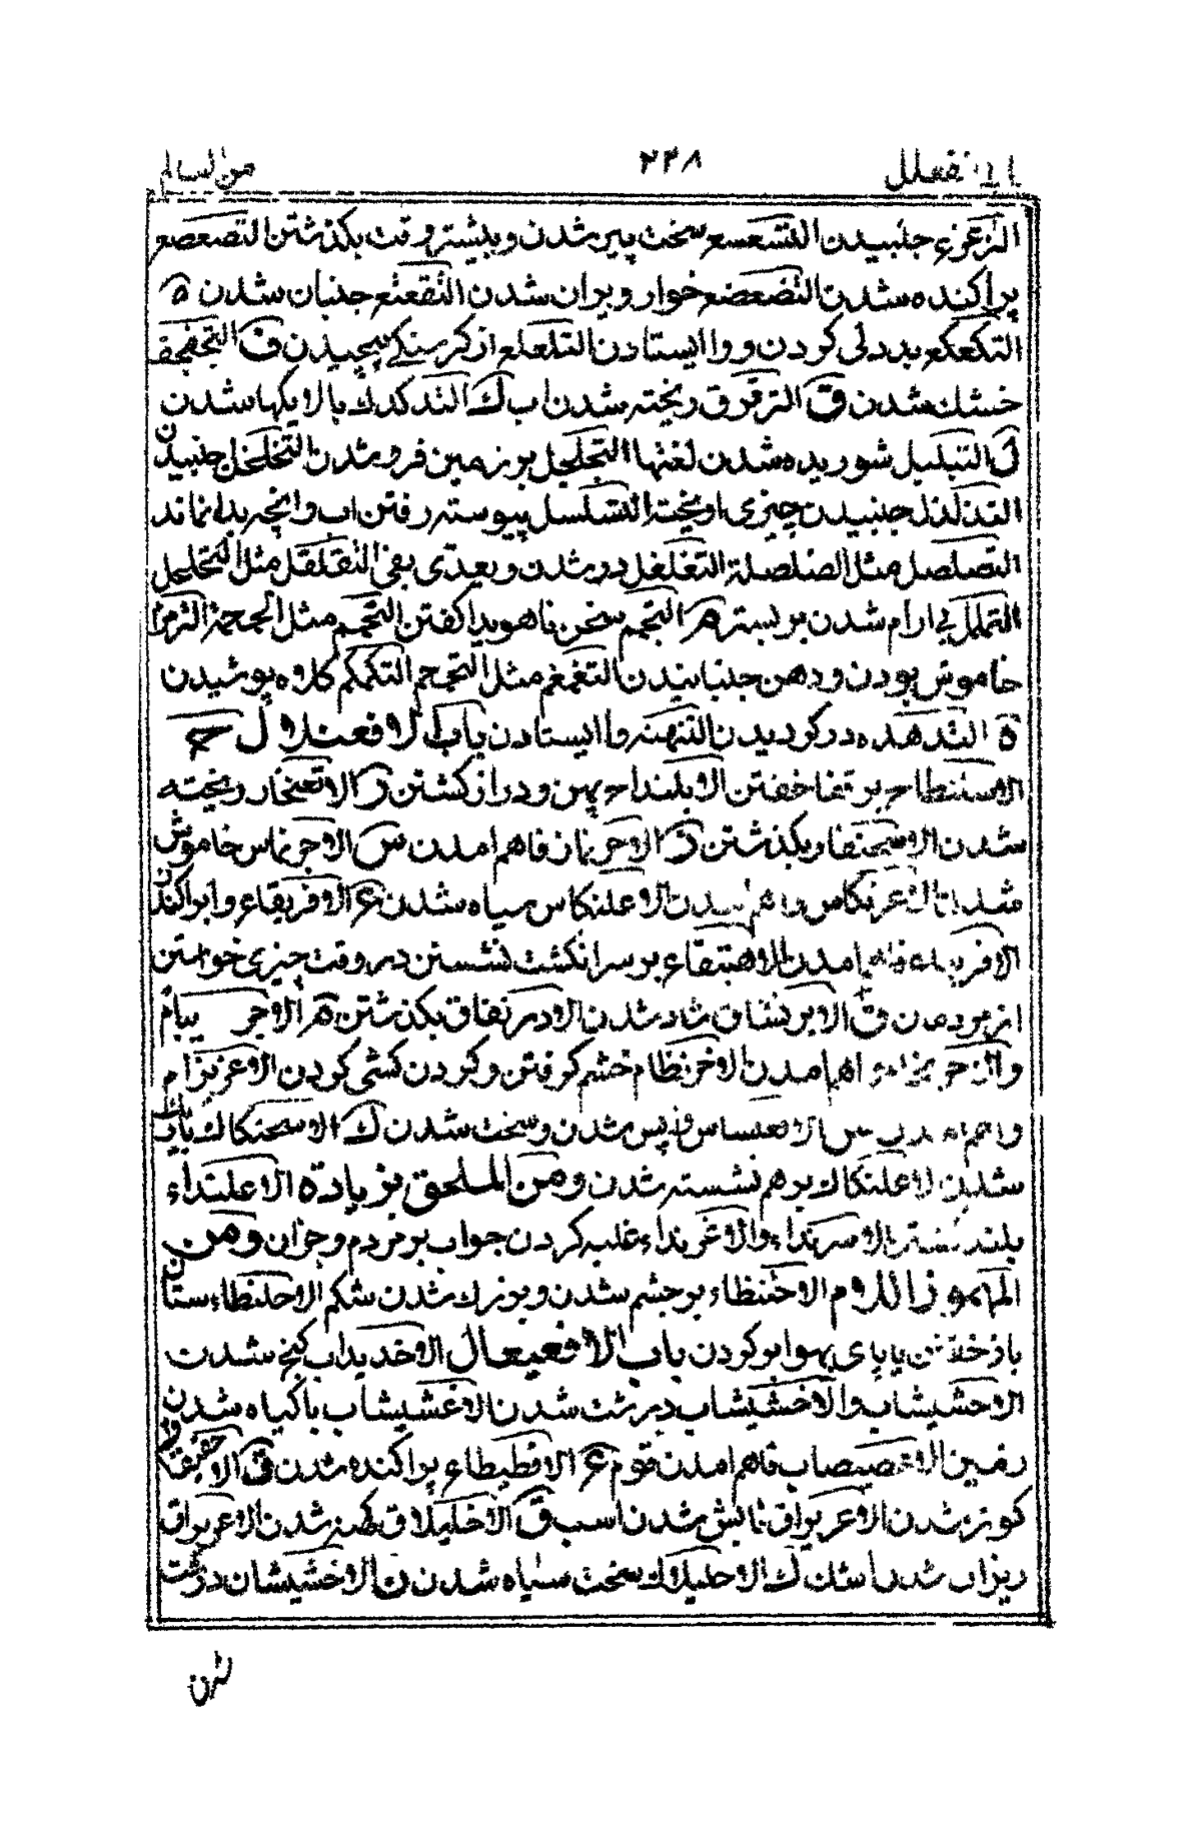 باب تفعلل ۲۴۸ من السالم
التزعزع جنبیدن التسعسع سخت پیر شدن و بیشتر وقت بکذشتن التصعصع
پراکنده شدن التضعضع خوار و یران شدن التقعقع جنبان شدن
التکعکع بددلی کردن و وا ایستادن التلعلع از کرسنکی پیچیدن ف التجفجف
خشك شدن ق الترقرق ریخته شدن اب ك التدکدك بالایکها شدن
ل التبلبل شوریده شدن لغتها التجلجل بر زمین فرو شدن التخلخل جنبیدن
التذلذل جنبیدن چیزی اویخته التسلسل پیوسته رفتن اب و انچه بدان ماند
التصلصل مثل الصلصلة التغلغل در شدن و یعدی بفی التقلقل مثل التحلحل
التململ بی ارام شدن بر بستر م التجمجم سخن نا هویدا کفتن التحمحم مثل الحمحمة الترمرم
خاموش بودن و دهن جنبانیدن التغمغم مثل التجمجم التکمکم کلاه پوشیدن
ه التدهده در کردیدن التنهنه وا ایستادن باب الافعنلال ح
الاسلنطاح بر قفا خفتن الابلنداح پهن و دراز کشتن ر الاثعنجار ریخته
شدن الاسحنفار بکذشتن ز الاجرنماز فاهم امدن س الاجرنماس خاموش
شدن الاعرنکاس فاهم شدن الاعلنکاس سیاه شدن ع الافرنقاع وا پراکندن
امدن الاهبنقاع بر سر انکشت نشستن در وقت چیزی خواستن
از مردمان ق الابرنشاق شاد شدن الادرنفاق بکذشتن م الاجرنثام
والاحرنجام فاهم امدن الاخرنطام خشم کرفتن و کردن کشی کردن الاعرنزام
فاهم امدن س الاقعنساس واپس شدن و سخت شدن ك الاسحنکاك
شدن الاعلنکاك برهم نشسته شدن ومن الملحق بزیادة الاعلنداء
بلند الاسرنداء والاغرنداء غلبه کردن جواب بر مردم و جزان ومن
المهموز اللام الاحبنطاء بر خشم شدن و بزرك شدن شکم الاحلنظاء ستان
باز خفتن یا پای بهوا بر کردن باب الافعیعال الاخدیداب کنج شدن
الاحشیشاب والاخشیشاب درشت شدن الاعشیشاب با کیاه شدن
زمین الاعصیصاب فاهم امدن قوم ع الاقطیطاع پراکنده شدن ق الاحقیقاق
کوژ شدن الاعریراق شدن اسب ق الاخلیلاق کهنه شدن الاعریراق
ریزان شدن ك الاحلیلاك سخت سیاه شدن ن الاخشیشان درشت
شدن